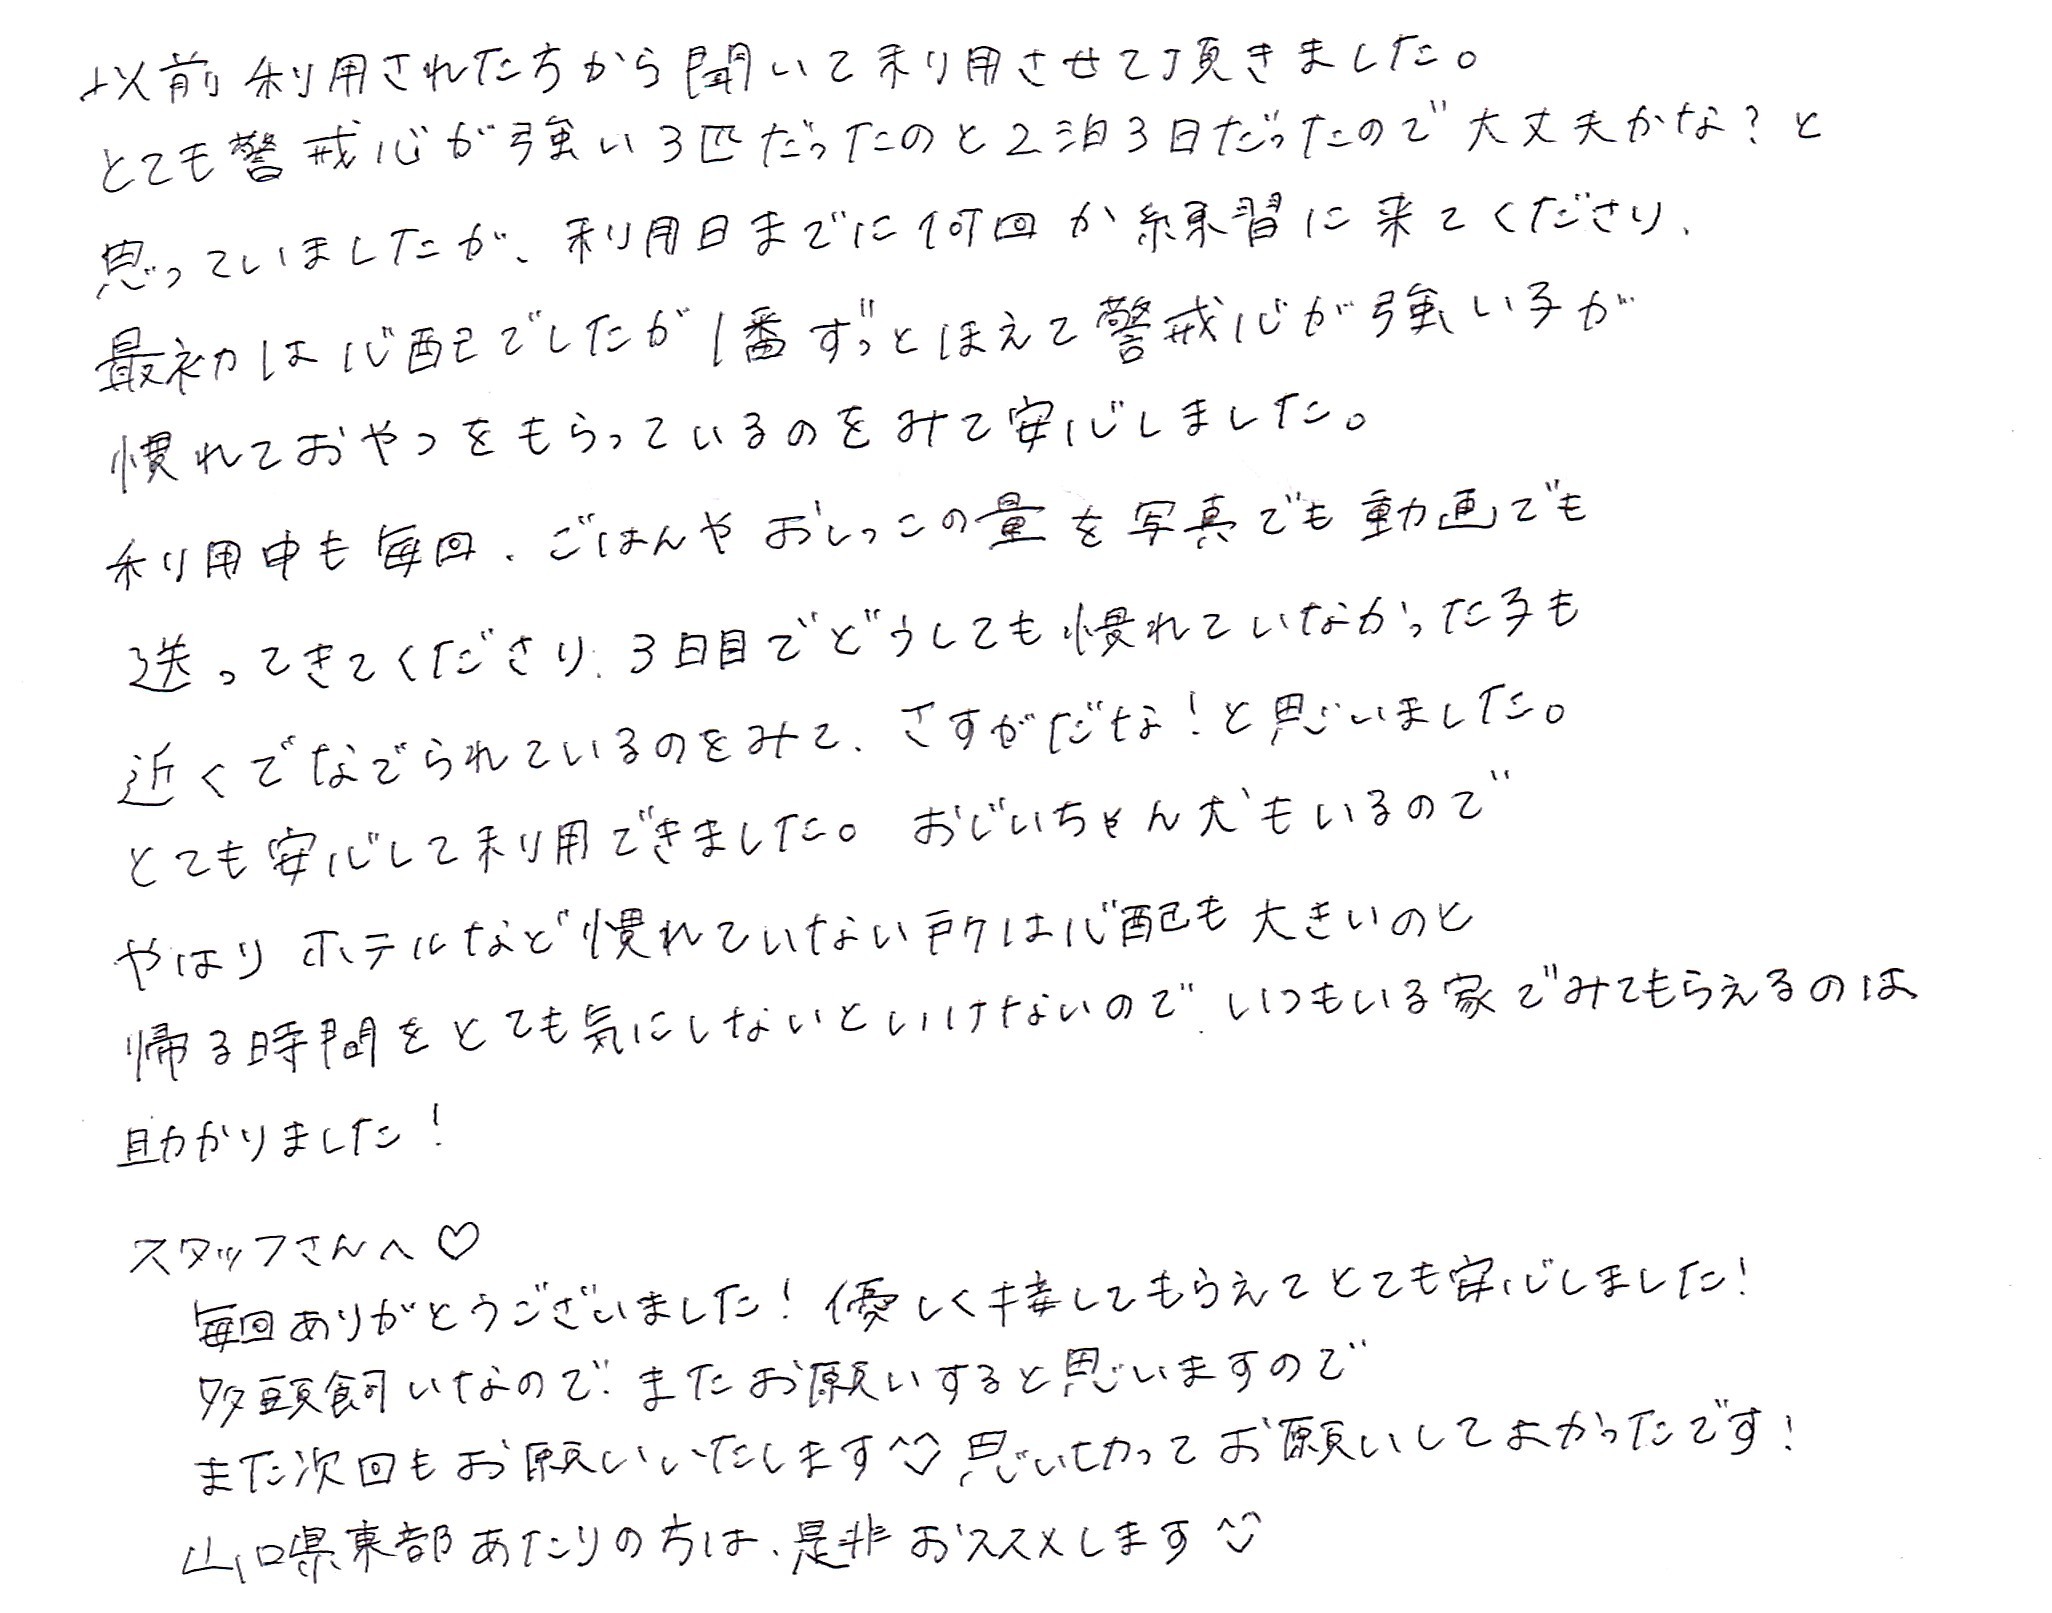 以前利用された方から聞いて利用させて頂きました。
とても警戒心が強い3匹だったのと2泊3日だったので大丈夫かな?と
思っていましたが、利用日までに何回か練習に来てくださり、
最初は心配でしたが1番ずっとほえて警戒心が強い子が
慣れておやつをもらっているのをみて安心しました。
利用中も毎回、ごはんやおしっこの量を写真でも動画でも
送ってきてくださり、3日目でどうしても慣れていなかった子も
近くでなでられているのをみて、さすがだな!と思いました。
とても安心して利用できました。おじいちゃん犬もいるので
やはりホテルなど慣れていない所は心配も大きいのと
帰る時間をとても気にしないといけないので、いつもいる家でみてもらえるのは
助かりました!
スタッフさんへ♡
毎回ありがとうございました!優しく接してもらえてとても安心しました!
多頭飼いなので、またお願いすると思いますので
また次回もお願いいたします^^思い切ってお願いしてよかったです!
山口県東部あたりの方は、是非おススメします^^